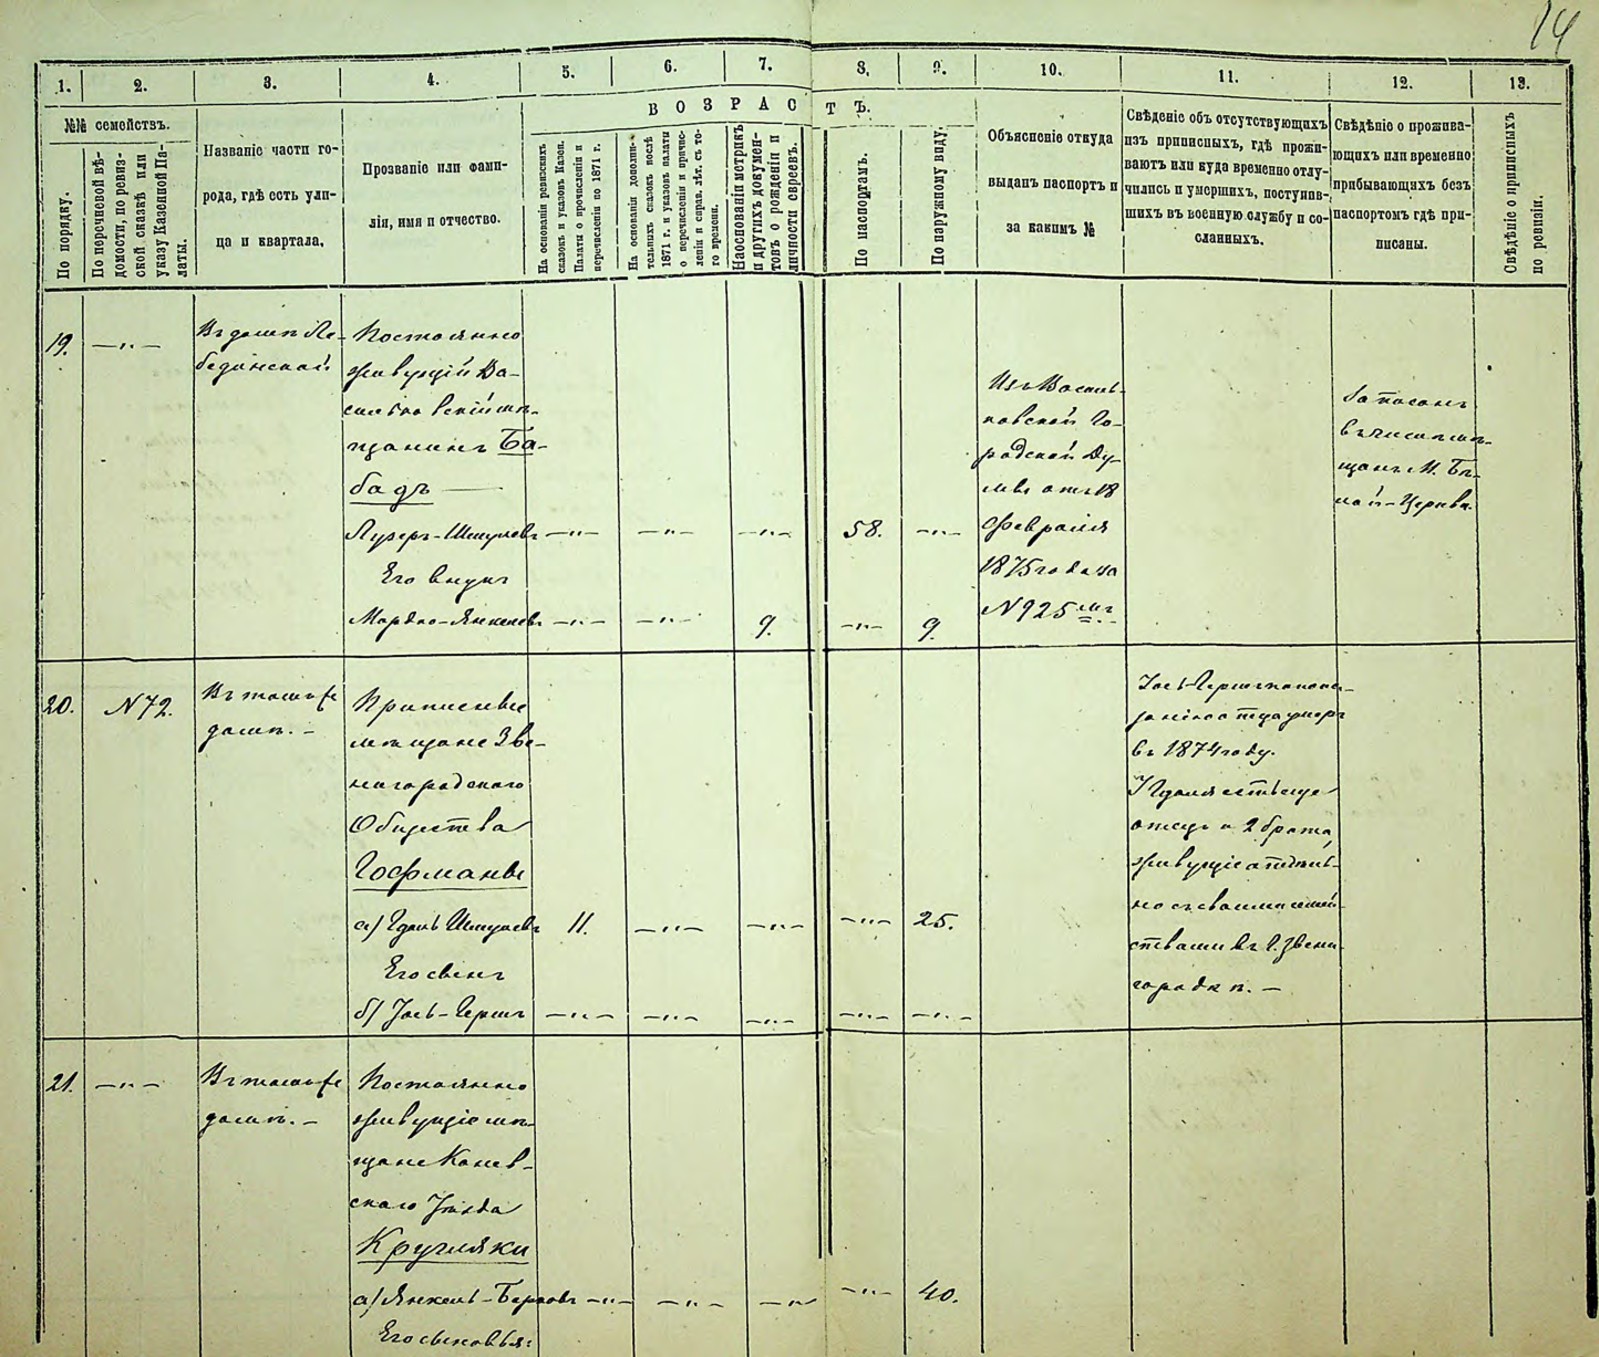 14
1. 2. 3. 4. 5. 6. 7. 8. 9. 10. 11. 12. 13.
№№ семействъ.
По порядку.
По перечневой вѣ-
домости, по ревиз-
ской сказкѣ или
указу Казенной Па-
латы.
Названіе части го-
рода, гдѣ есть ули-
ца и квартала.
Прозваніе или фами-
лія, имя и отчество.
ВОЗРАСТЪ.
На основаніи ревизскихъ
сказокъ и указовъ Казен.
Палаты о причисленіи и
перечисленіи по 1871 г.
На основаніи дополни-
тельныхъ сказокъ послѣ
1871 г. и указовъ палаты
о перечисленіи и причис-
леніи и справ. лѣт. съ то-
го времени.
На основаніи метрикъ
и другихъ докумен-
товъ о рожденіи и
личности евреевъ.
По паспортамъ.
По наружному виду.
Объясненіе откуда
выданъ паспортъ и
за какимъ №
Свѣденіе объ отсутствующихъ
изъ приписныхъ, гдѣ прожи-
ваютъ или куда временно отлу-
чились и умершихъ, поступив-
шихъ въ военную службу и со-
сланныхъ.
Свѣдѣніе о прожива-
ющихъ или временно
прибывающихъ безъ
паспортомъ гдѣ при-
писаны.
Свѣдѣніе о приписныхъ
по ревизіи.
19. —„—
Въ домѣ Ле-
бединской
Постоянно
живущій Ва-
сильковскій мѣ-
щанинъ Ба-
бадъ —
Лузеръ-Шмулевъ —„— —„— —„— 58. —„—
Его внукъ
Мордко-Янкелевъ —„— —„— 9. —„— 9.
Изъ Василь-
ковской Го-
родской Ду-
мы отъ 18
Февраля
1875 года за
N 925 мъ.
Записанъ
въ число мѣ-
щанъ М. Бѣ-
лой-Церкви.
20. N 72.
Въ томъ же
домѣ. —
Приписные
мѣщане Зве-
нигородского
Общества
Гофманы
а) Идель Шмулевъ 11. —„— —„— —„— 25.
Его сынъ
б) Іось-Гершъ —„— —„— —„— —„— —„—
Іось-Гершъ по
отца умеръ
въ 1874 году.
У Иделя есть еще
отецъ и 2 брата,
живущіе отдѣль-
но съ своими семей-
ствами въ г. Звени-
городкѣ. —
21. —„—
Въ томъ же
домѣ. —
Постоянно
живущіе мѣ-
щане Канев-
скаго Уѣзда
Кругляки
а) Янкель-Берковъ —„— —„— —„— —„— 40.
Его сыновья: